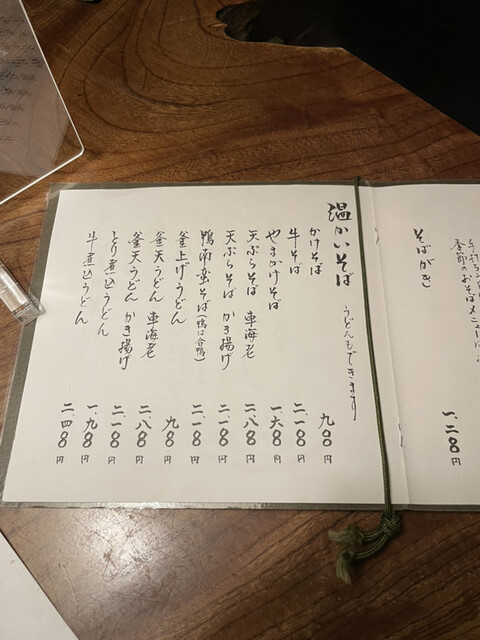 季節のおそばメニュー
そばがき 一、二〇〇円
温かいそば うどんもできます
かけそば 九〇〇円
牛そば 二、一〇〇円
やまかけそば 一、六〇〇円
天ぷらそば 車海老 二、八〇〇円
天ぷらそば かき揚げ 二、一〇〇円
鴨南蛮そば(鴨は合鴨) 二、一〇〇円
釜上げうどん 九〇〇円
釜天うどん 車海老 二、八〇〇円
釜天うどん かき揚げ 二、一〇〇円
とり煮込うどん 一、九〇〇円
牛煮込うどん 二、四〇〇円